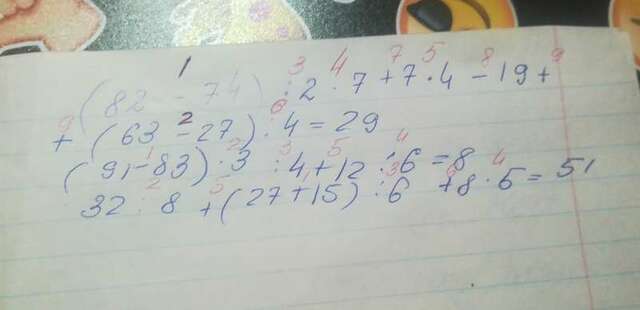 1 3 4 7 5 8 9
(82 - 74) : 2 · 7 + 7 · 4 - 19 +
9 2 6
+ (63 - 27) : 4 = 29
1 2 3 5 4
(91 - 83) · 3 : 4 + 12 : 6 = 8
2 5 1 3 6 4
32 : 8 + (27 + 15) : 6 + 8 · 5 = 51